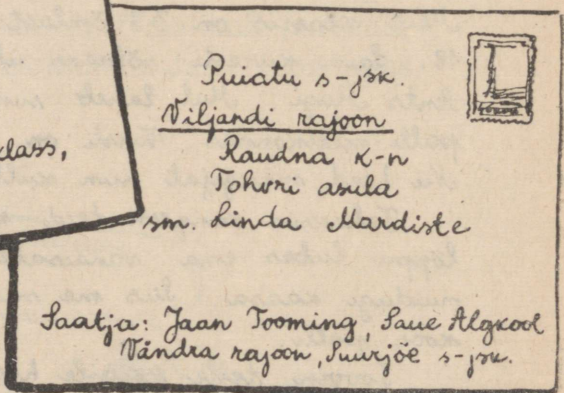 Puiatu s-jsk.
Viljandi rajoon
Raudna k-n
Tohvri asula
sm. Linda Mardiste
class,
Saatja: Jaan Tooming, Saue Algkool
Vändra rajoon, Suurjõe s-jsk.